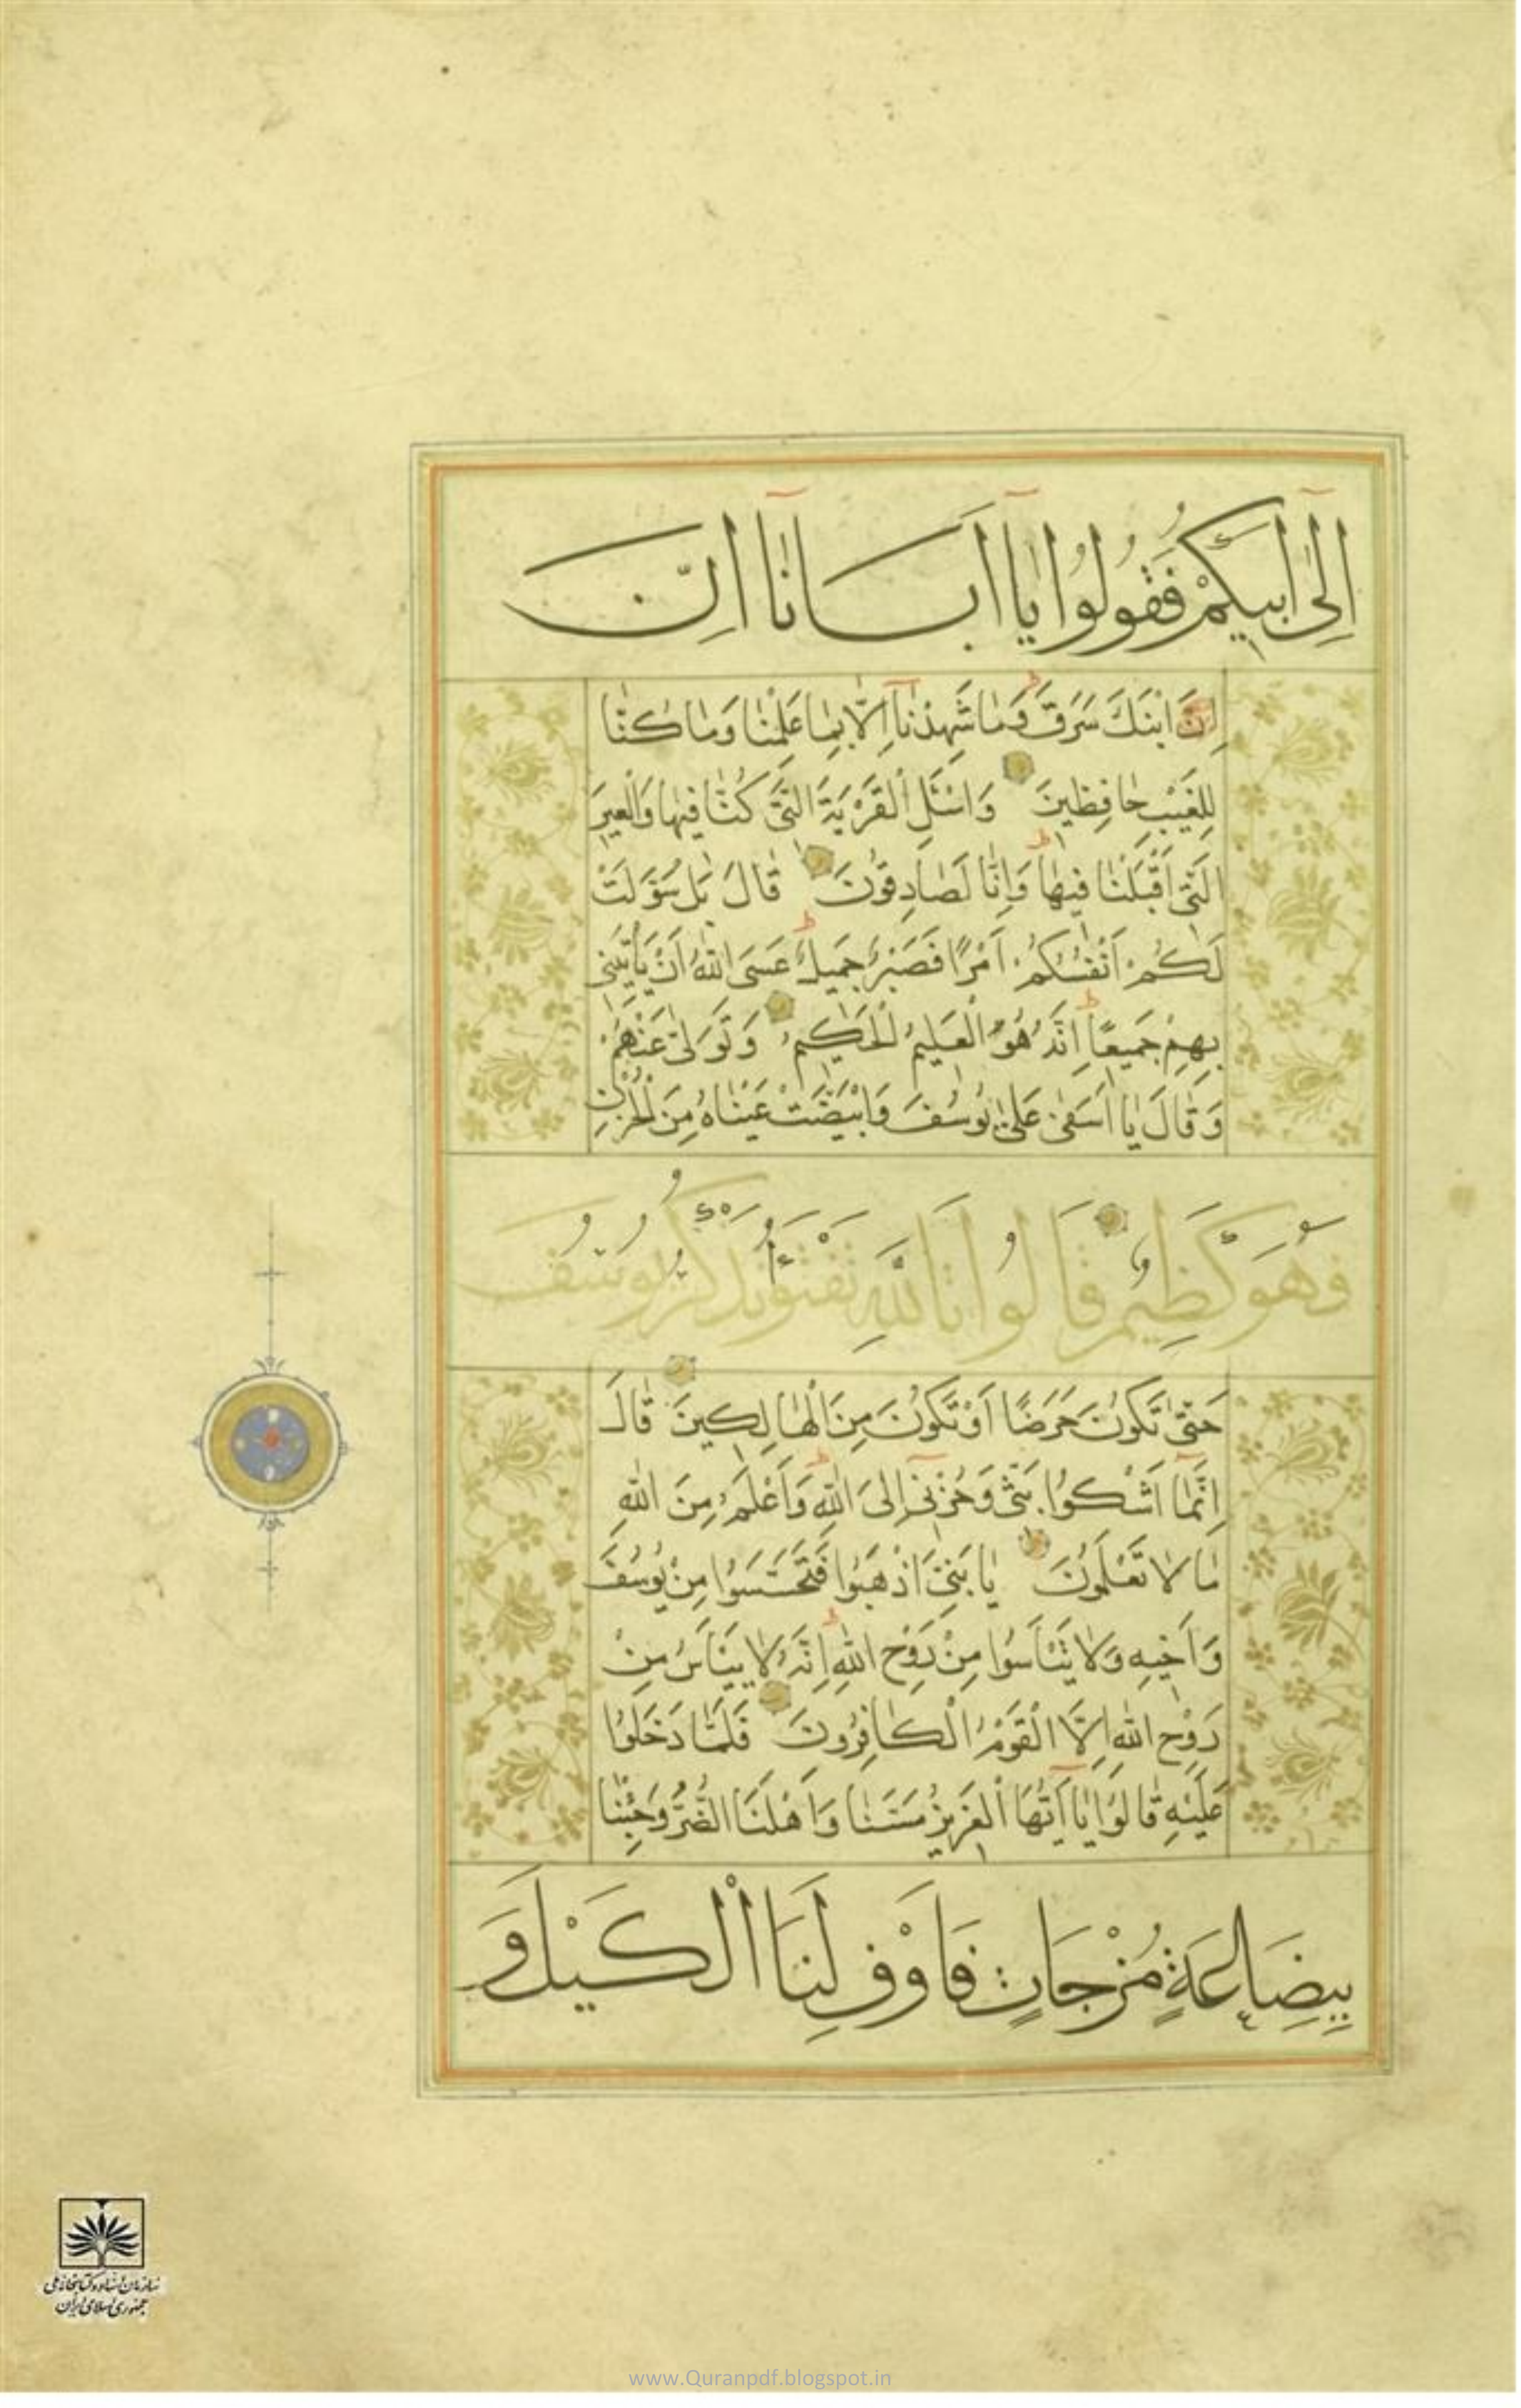 اِلٰٓى اَبيكُمْ فَقُولُوا يٰٓا اَبَانٰٓا اِنَّ
اِنَّ ابْنَكَ سَرَقَ وَمٰا شَهِدْنٰٓا اِلّٰا بِمٰا عَلِمْنٰا وَمٰا كُنّٰا
لِلْغَيْبِ حٰافِظينَ وَاسْئَلِ الْقَرْيَةَ الَّتى كُنّٰا فيهٰا وَالْعيرَ
الَّتى اَقْبَلْنٰا فيهٰا وَاِنّٰا لَصٰادِقُونَ قٰالَ بَلْ سَوَّلَتْ
لَكُمْ اَنْفُسُكُمْ اَمْرًا فَصَبْرٌ جَميلٌ عَسَى اللّٰهُ اَنْ يَأْتِيَنى
بِهِمْ جَميعًا اِنَّهُ هُوَ الْعَليمُ الْحَكيمُ وَتَوَلّٰى عَنْهُمْ
وَقٰالَ يٰا اَسَفٰى عَلٰى يُوسُفَ وَابْيَضَّتْ عَيْنٰاهُ مِنَ الْحُزْنِ
فَهُوَ كَظيمٌ قٰالُوا تَاللّٰهِ تَفْتَؤُا تَذْكُرُ يُوسُفَ
حَتّٰى تَكُونَ حَرَضًا اَوْ تَكُونَ مِنَ الْهٰالِكينَ قٰالَ
اِنَّمٰٓا اَشْكُوا بَثّى وَحُزْنىٓ اِلَى اللّٰهِ وَاَعْلَمُ مِنَ اللّٰهِ
مٰا لٰا تَعْلَمُونَ يٰا بَنِىَّ اذْهَبُوا فَتَحَسَّسُوا مِنْ يُوسُفَ
وَاَخيهِ وَلٰا تَيْاَسُوا مِنْ رَوْحِ اللّٰهِ اِنَّهُ لٰا يَيْاَسُ مِنْ
رَوْحِ اللّٰهِ اِلَّا الْقَوْمُ الْكٰافِرُونَ فَلَمّٰا دَخَلُوا
عَلَيْهِ قٰالُوا يٰٓا اَيُّهَا الْعَزيزُ مَسَّنٰا وَاَهْلَنَا الضُّرُّ وَجِئْنٰا
بِبِضَاعَةٍ مُزْجَاتٍ فَاَوْفِ لَنَا الْكَيْلَ وَ
سازمان اسناد و کتابخانه ملی
جمهوری اسلامی ایران
www.Quranpdf.blogspot.in